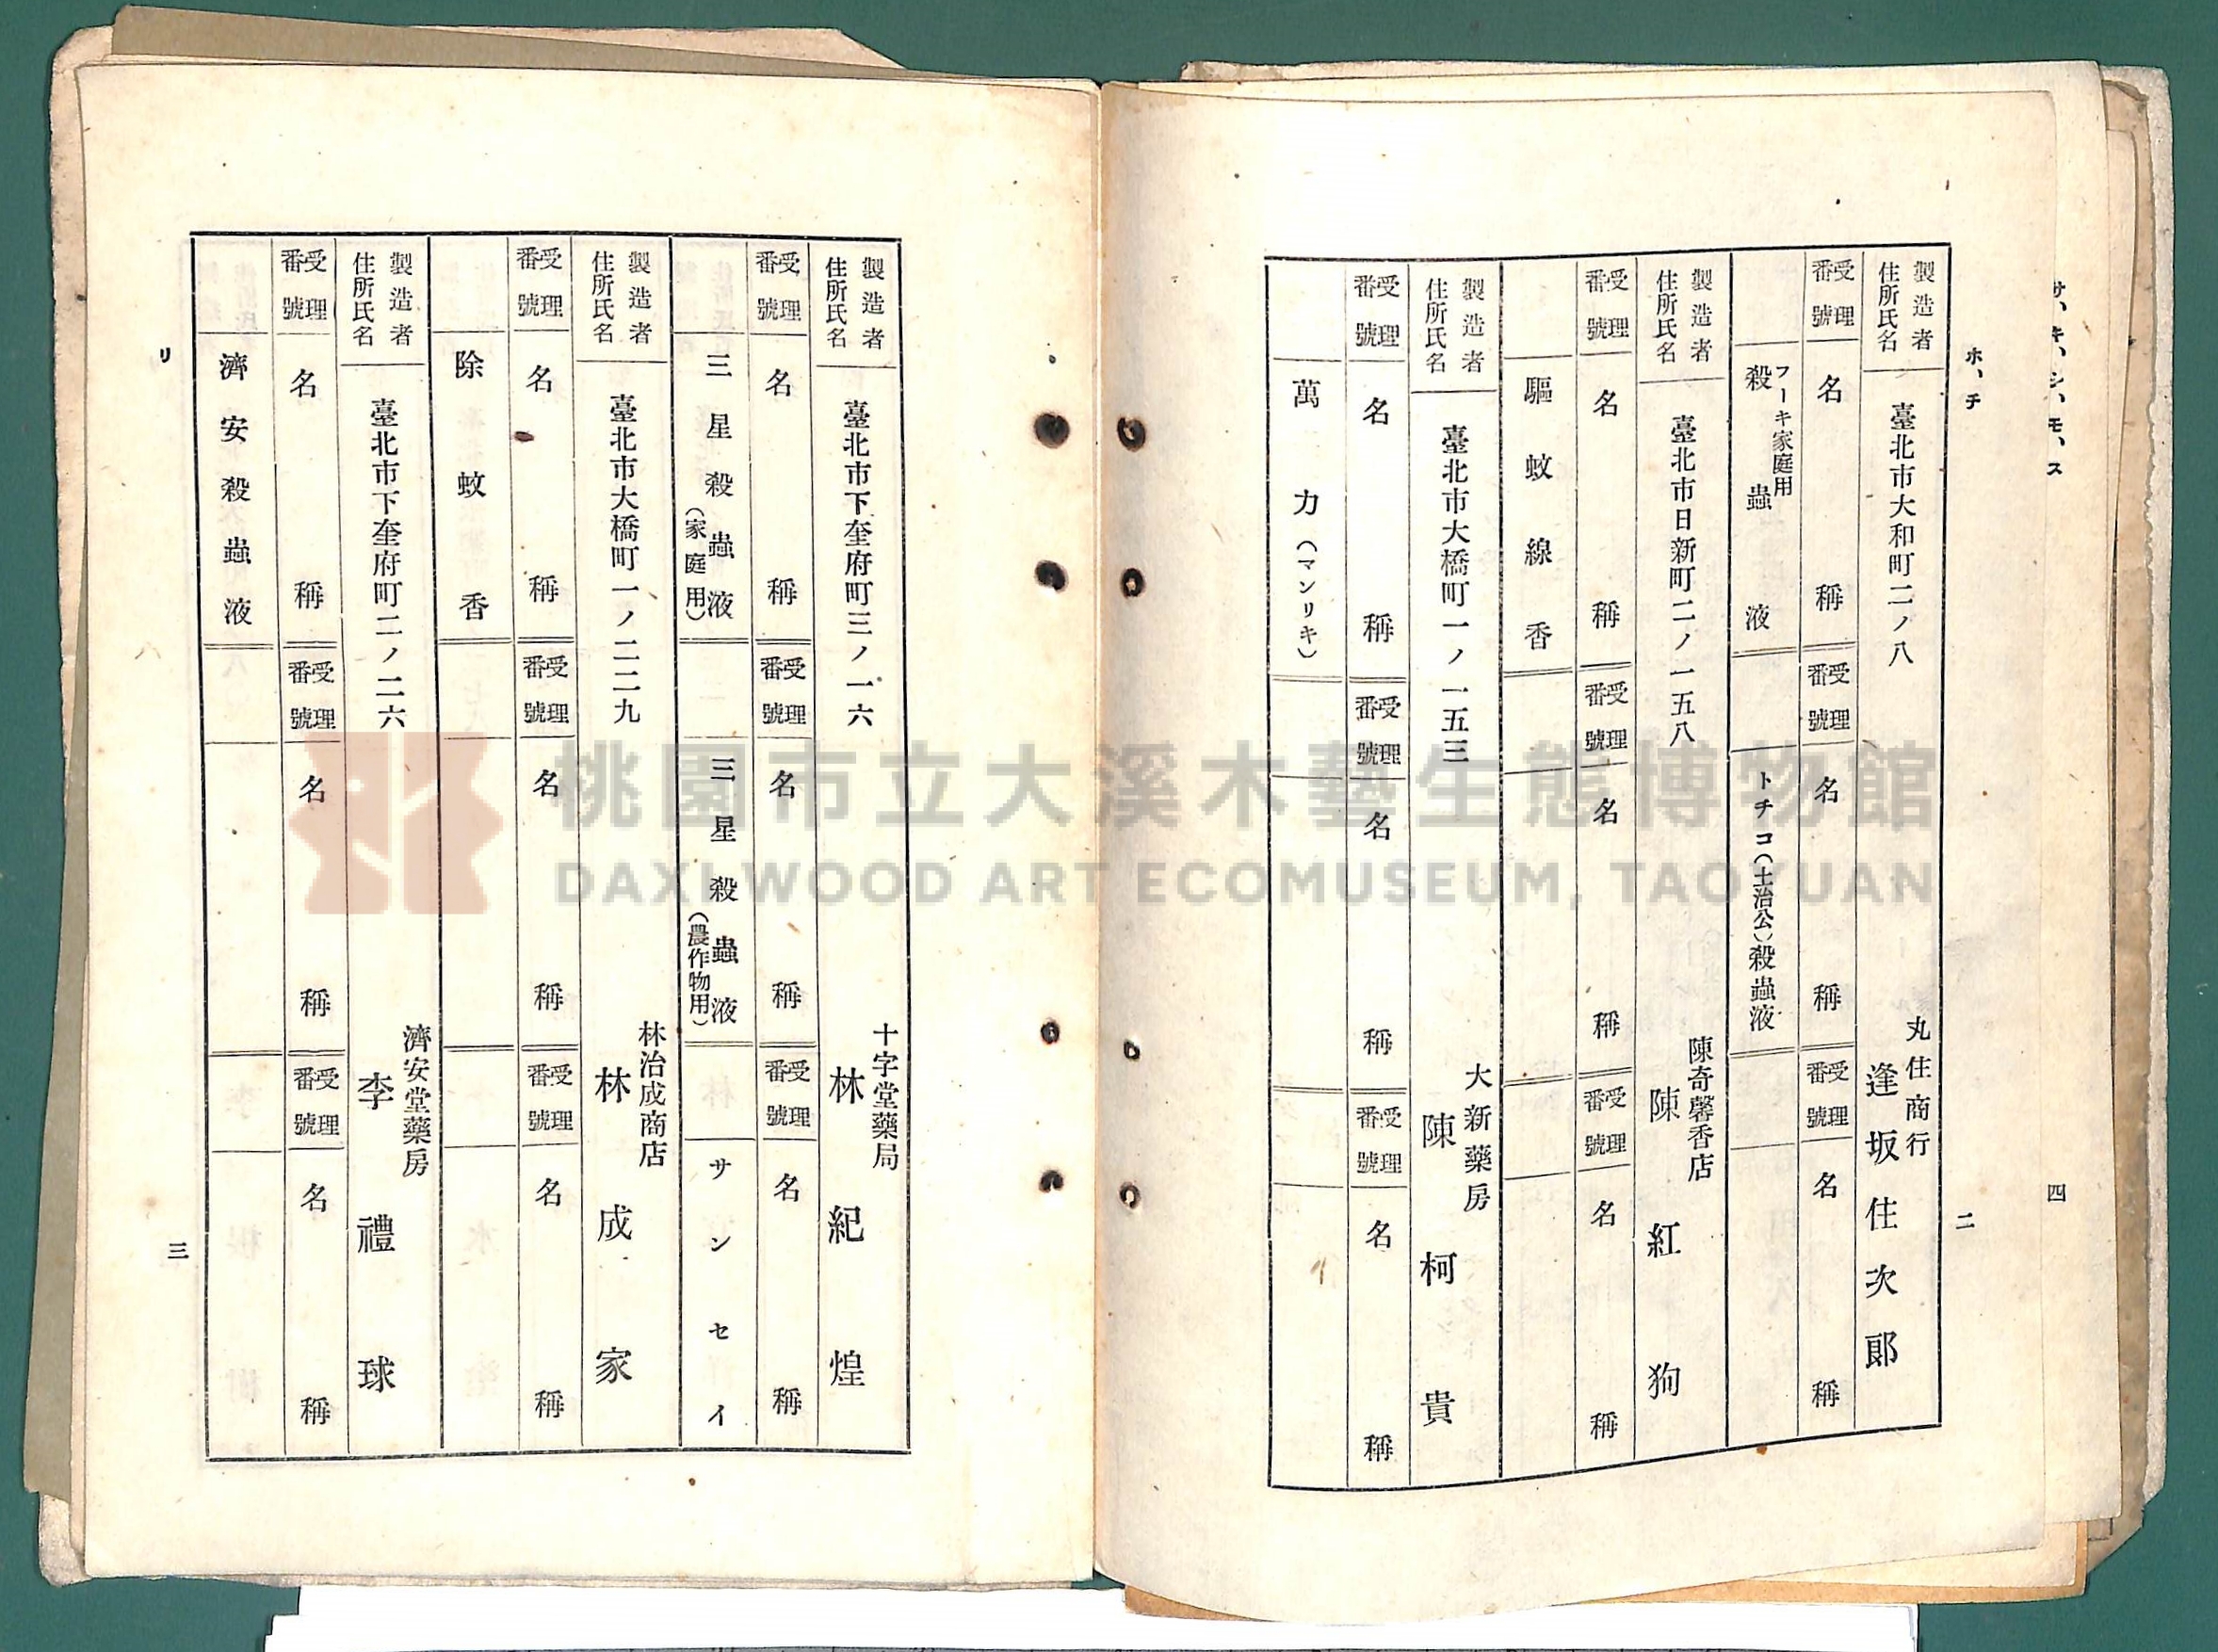 サ、キ、シ、モ、ス
四
ホ、チ
二
製造者
住所氏名
臺北市大和町二ノ八
丸住商行
逢坂住次郞
受理
番號
名稱
受理
番號
名稱
受理
番號
名稱
フーキ家庭用
殺蟲液
トチコ(土治公)殺蟲液
製造者
住所氏名
臺北市日新町二ノ一五八
陳奇馨香店
陳紅狗
受理
番號
名稱
受理
番號
名稱
受理
番號
名稱
驅蚊線香
製造者
住所氏名
臺北市大橋町一ノ一五三
大新藥房
陳柯貴
受理
番號
名稱
受理
番號
名稱
受理
番號
名稱
萬力(マンリキ)
製造者
住所氏名
臺北市下奎府町三ノ一六
十字堂藥局
林紀煌
受理
番號
名稱
受理
番號
名稱
受理
番號
名稱
三星殺蟲液
(家庭用)
三星殺蟲液
(農作物用)
サンセイ
製造者
住所氏名
臺北市大橋町一ノ二二九
林治成商店
林成家
受理
番號
名稱
受理
番號
名稱
受理
番號
名稱
除蚊香
製造者
住所氏名
臺北市下奎府町二ノ二六
濟安堂藥房
李禮球
受理
番號
名稱
受理
番號
名稱
受理
番號
名稱
濟安殺蟲液
リ
三
桃園市立大溪木藝生態博物館
DAXI WOOD ART ECOMUSEUM, TAOYUAN